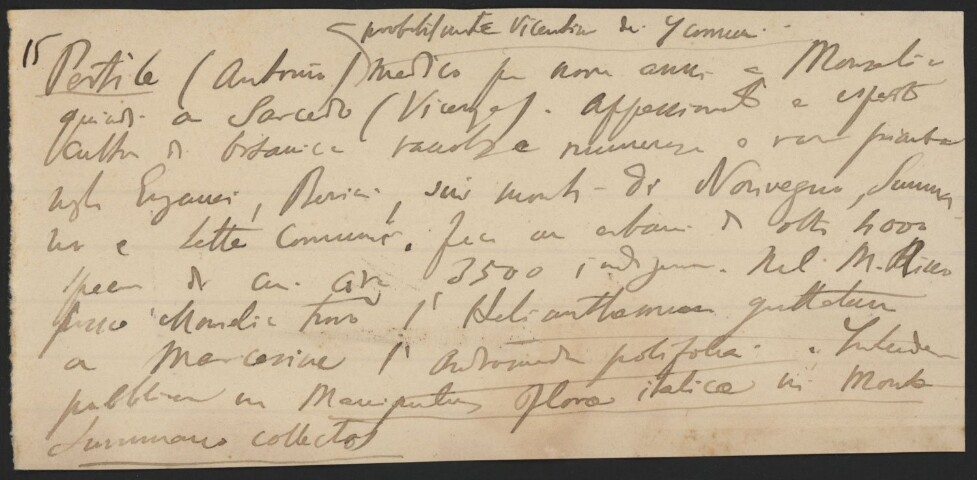 probabilmente Vicentino dei 7 comuni.
15 Pertile (Antonio) medico per nove anni a Monselice
quindi a Sarcedo (Vicenza). Appassionato e esperto
cultor di botanica raccolse numerose e rare piante
negli Euganei, Berici, sui monti di Novegno, Summa
no e Sette Comuni. Fece un erbario di oltre 4000
specie di cui circa 3500 indigene. Nel M. Ricco
presso Monselice trovò l' Helianthemum guttatum
a Marcesine l' Andromeda polifolia. Intendeva
pubblicare un Manipulus florae italicae in Monte
Summano collectus